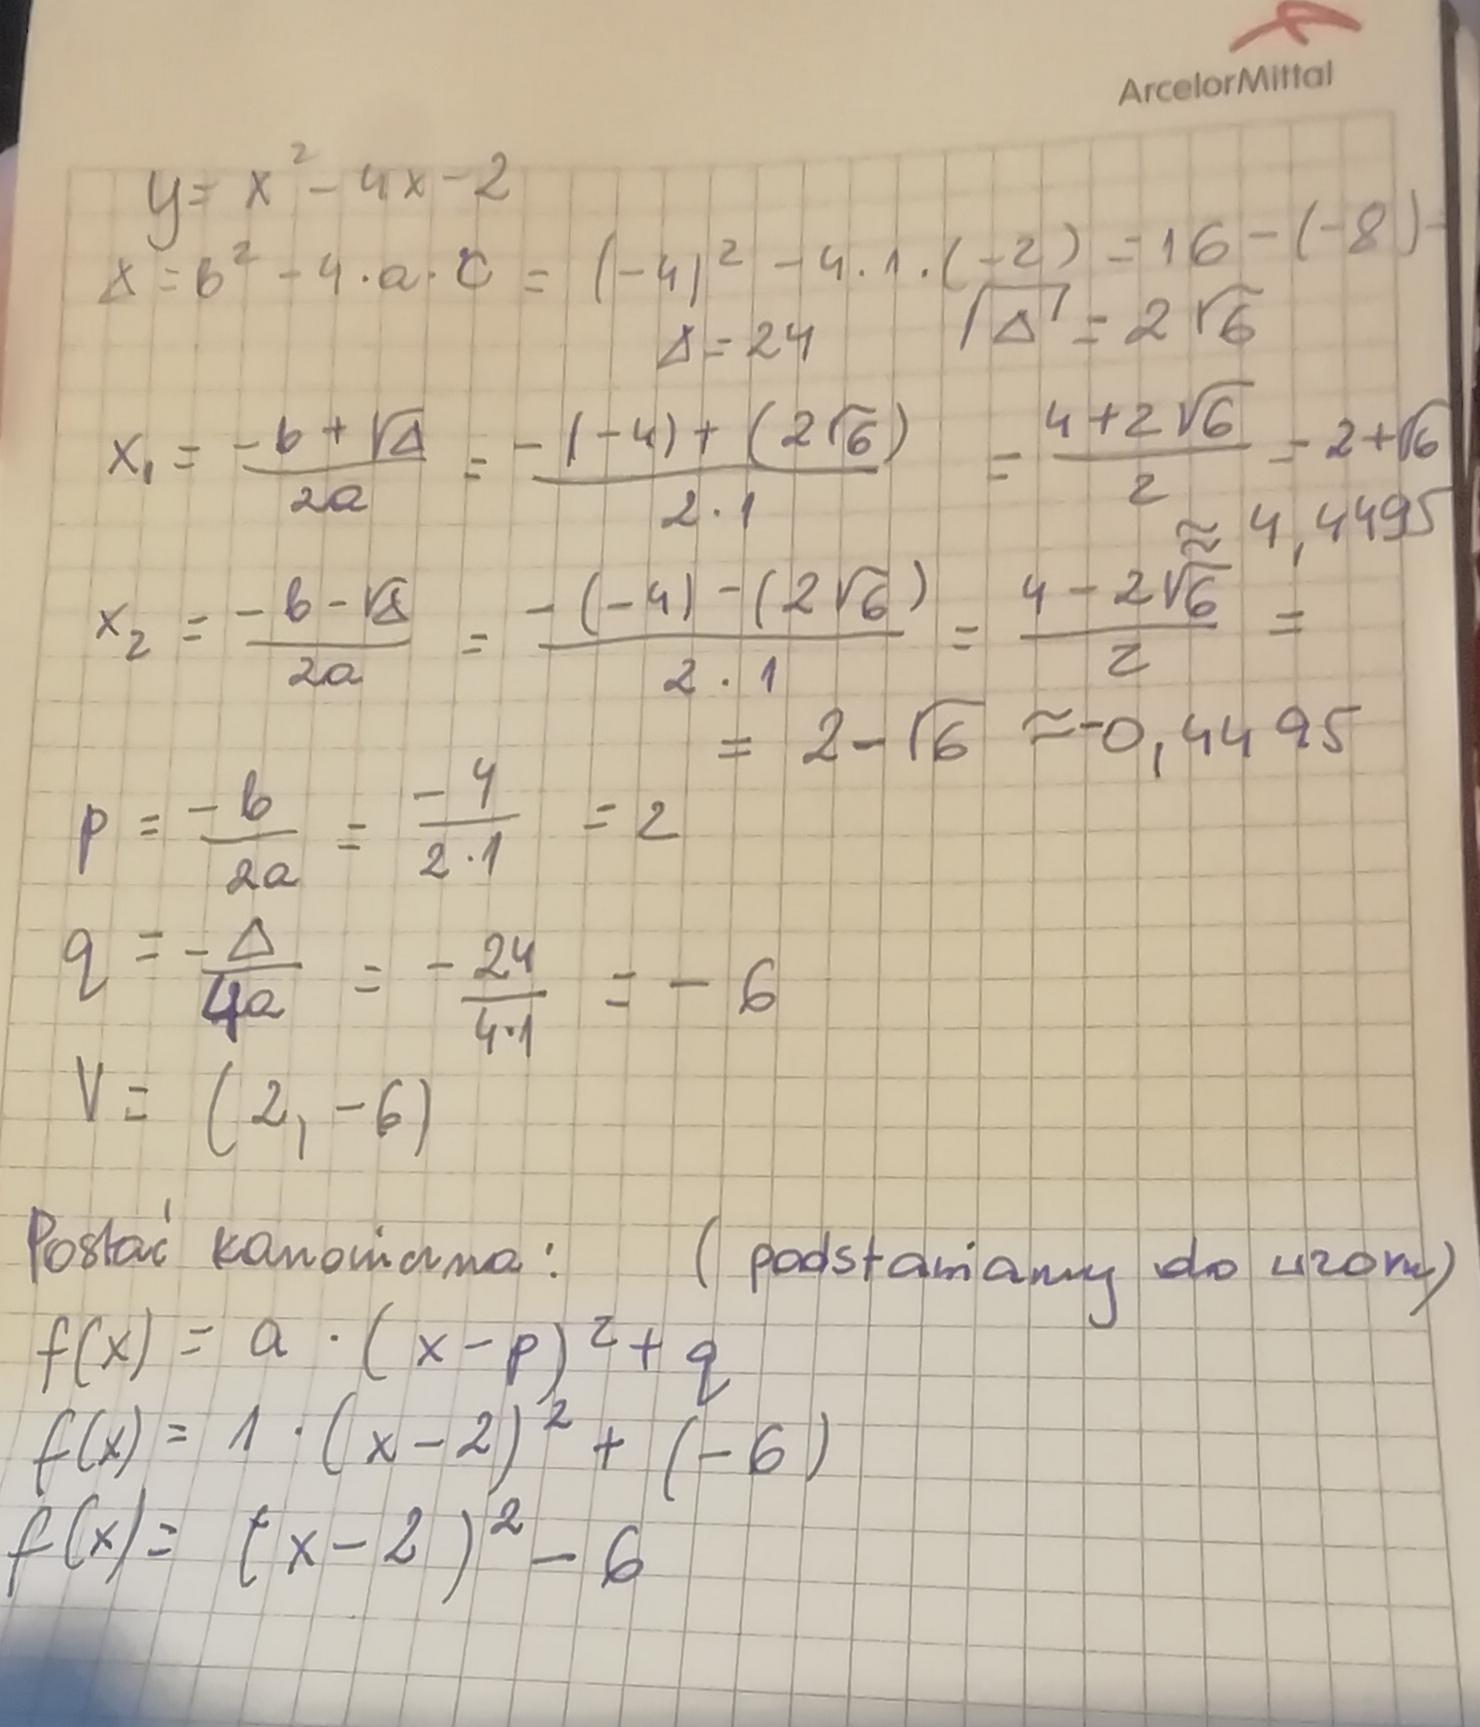 ArcelorMittal
y = x² - 4x - 2
Δ = b² - 4·a·c = (-4)² - 4·1·(-2) = 16 - (-8) -
Δ = 24 √Δ = 2√6
x₁ = (-b + √Δ)/(2a) = (-(-4) + (2√6))/(2·1) = (4 + 2√6)/2 = 2 + √6
≈ 4,4495
x₂ = (-b - √Δ)/(2a) = (-(-4) - (2√6))/(2·1) = (4 - 2√6)/2 =
= 2 - √6 ≈ -0,4495
p = (-b)/(2a) = (-4)/(2·1) = 2
q = -Δ/(4a) = -24/(4·1) = -6
V = (2, -6)
Postać kanoniczna: (podstawiamy do wzoru)
f(x) = a·(x - p)² + q
f(x) = 1·(x - 2)² + (-6)
f(x) = (x - 2)² - 6